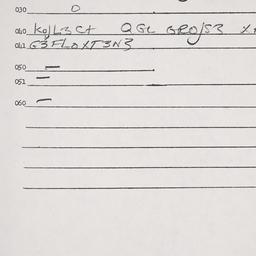 030 0
040 KO/L3C+ QGL GRO/S3
041 G3FLOXT3N3
050 —
051 —
060 —